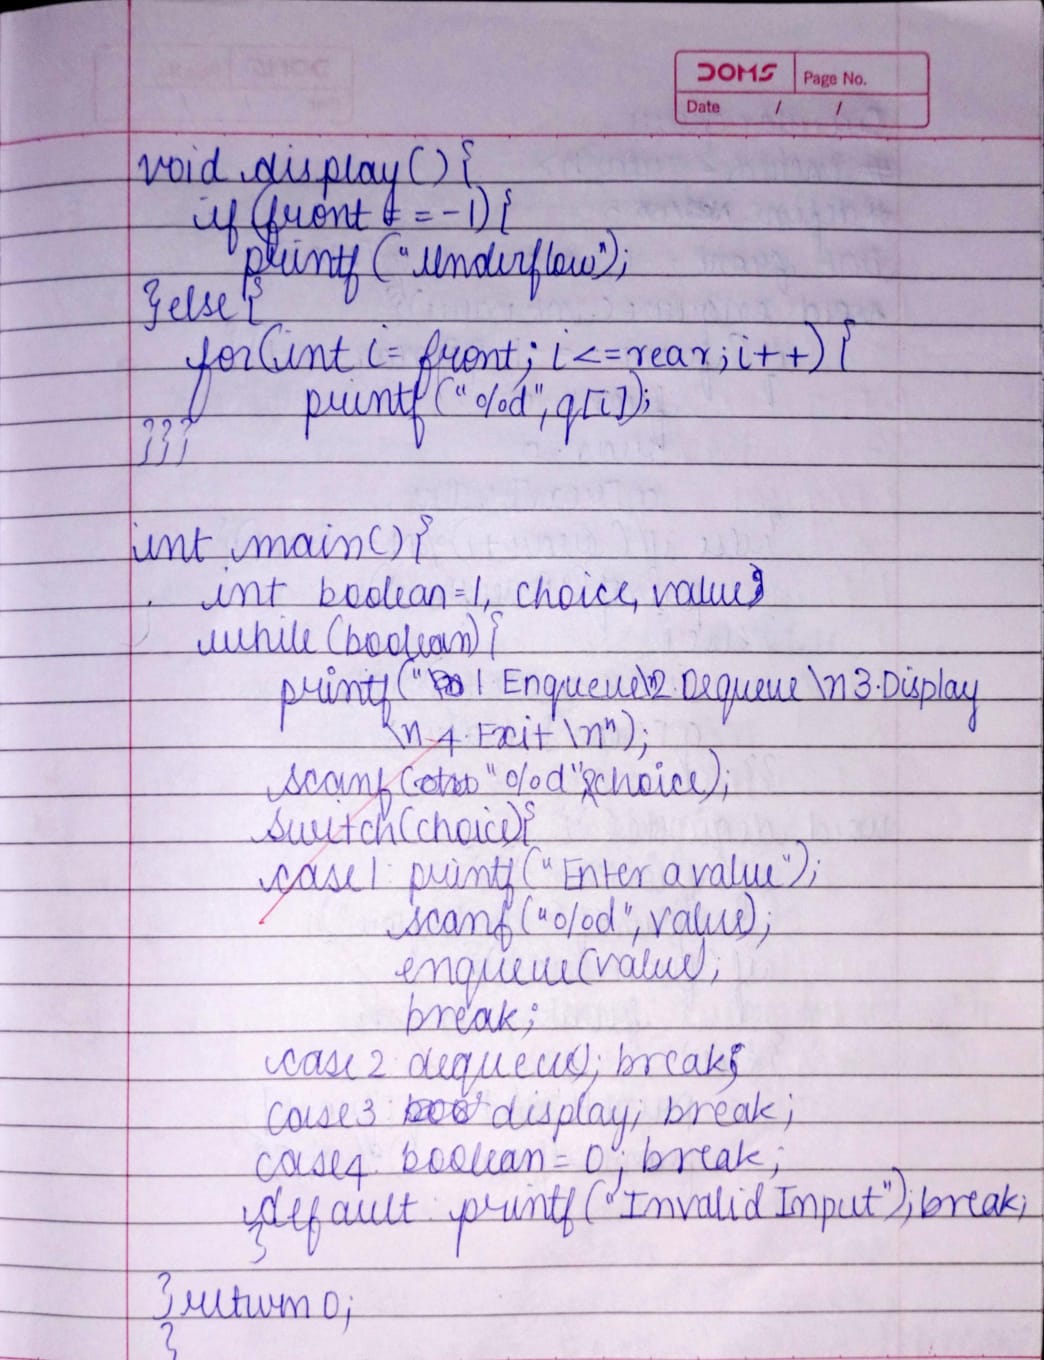 DOMS
Page No.
Date / /
void display() {
if (front == -1) {
printf ("Underflow");
} else {
for(int i= front; i <=rear; i++) {
printf ("%d", q[i]);
}}}
int main() {
int boolean=1, choice, value;
while (boolean) {
printf (" 1. Enqueue\n2. Dequeue \n 3. Display
\n 4. Exit \n");
scanf ( "%d", &choice);
switch(choice){
case 1: printf ("Enter a value");
scanf ("%d", value);
enqueue(value);
break;
case 2: dequeue(); break;
case 3 display; break;
case 4: boolean = 0; break;
default: printf ("Invalid Input"); break;
}
} return 0;
}